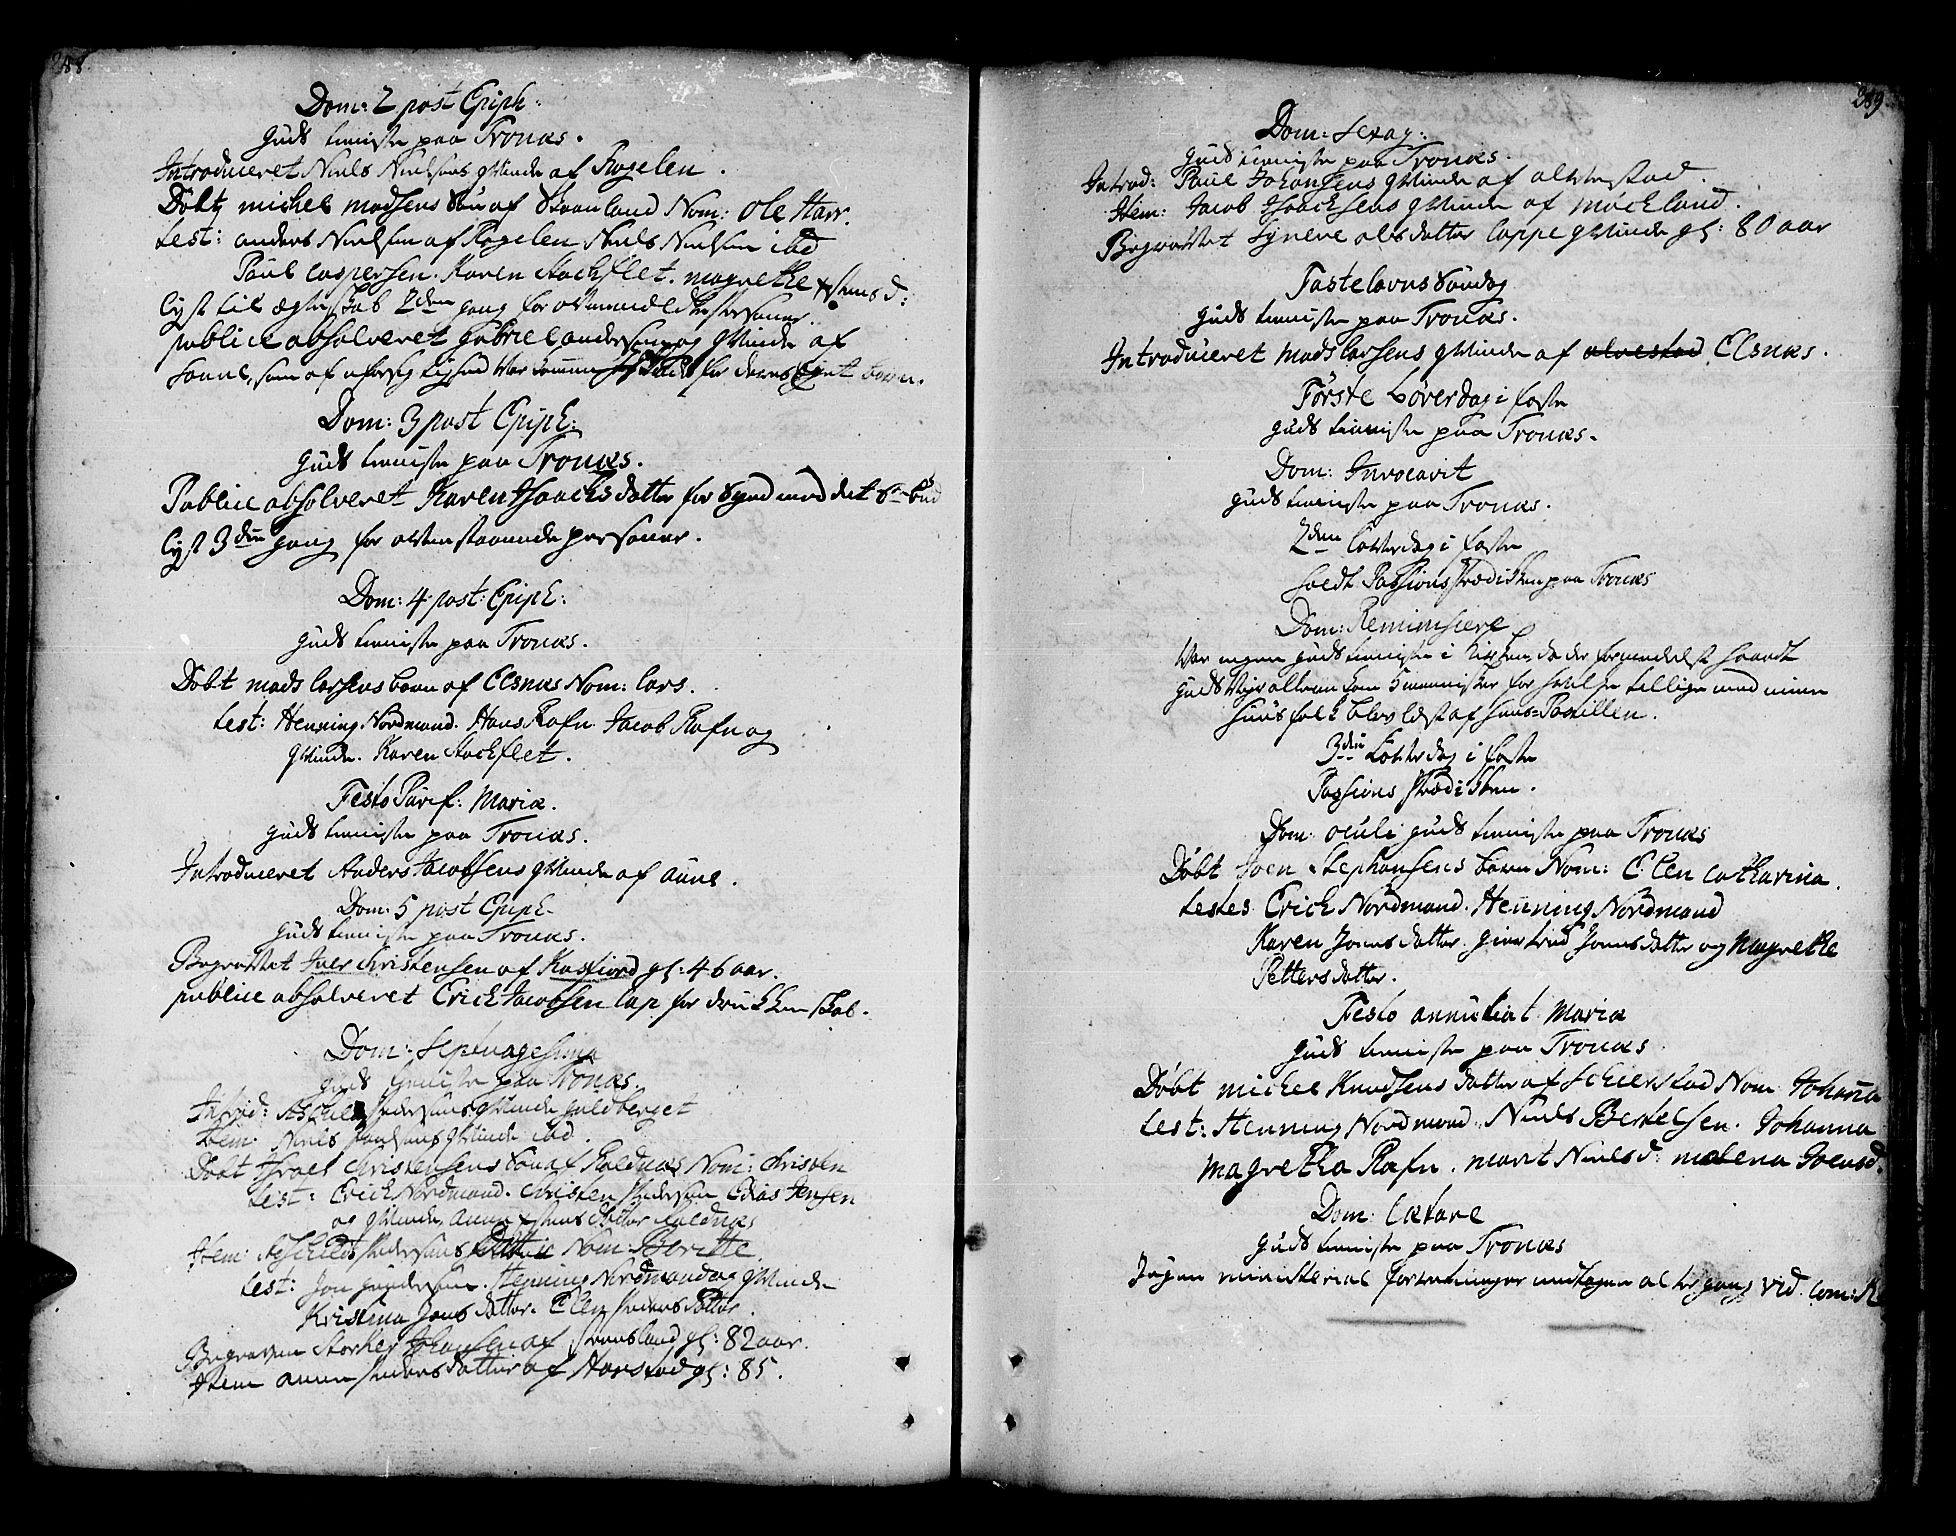 288
Dom: 2 post Epiph:
Guds tieniste paa Tronæs.
Introduceret Niels Nielsens qvinde af Rogelen.
Döbt michel madsens Sön af Skaanland Nom: Ole Harr.
test: anders Nielsen af Rogelen Niels Nielsen ibd
Paul Caspersen. Karen Stockflet. magrethe
lyst til ægteskab 2den gang for ommeldte personer.
publice absolveret Gabriel andersen og qvinde af
som af uforsigtighed for deres barn.
Dom: 3 post Epiph:
Guds tieniste paa Tronæs.
Publice absolveret Karen Isaachsdatter for Synd mod det 6te bud
lyst 3die gang for ovenstaaende personer.
Dom: 4 post: Epiph:
Guds tieniste paa Tronæs.
Döbt mads larsens barn af Elsnæs Nom: lars.
test: Henning Nordmand. Hans Rafn. Jacob Rafn og
qvinde. Karen Stockflet.
Festo Purif: Mariæ.
Guds tieniste paa Tronæs.
Introduceret Anders Jacobsens qvinde af aune.
Dom: 5 post Epiph:
Guds tieniste paa Tronæs.
Begravet Iver Christensen af Kasfiord gl: 46 aar.
publice absolveret Erich Jacobsen lap for drukkenskab.
Dom: Septuagesima
Guds tieniste paa Tronæs.
Introd: Pedersens qvinde guldberget
Item: Niels Poulsens qvinde ibd.
Döbt Israel Christensens Sön af Roldnæs Nom: Christen
test: Erich Nordmand. Christen Pedersen Elias Jensen
og qvinde, anna datter Roldnæs
Item: Pedersens datter Nom: Beritte
test: Jon gundersen. Henning Nordmand og qvinde
Kristina Jonsdatter. Elen Pedersdatter.
Begraven Storker Johansen af gl: 82 aar.
Item anna Pedersdatter af Harstad gl: 85.
289
Dom: Sexag:
Guds tieniste paa Tronæs.
Introd: Paul Johansens qvinde af alvestad.
Item: Jacob Isaachsens qvinde af mockland.
Begravet Syneve olsdatter lappeqvinde gl: 80 aar
Fastelavns Söndag
Guds tieniste paa Tronæs.
Introduceret mads larsens qvinde af alvestad Elsnæs.
Förste Löverdag i faste
Guds tieniste paa Tronæs.
Dom: Invocavit
Guds tieniste paa Tronæs.
2den löverdag i faste
holdt Passions prædiken paa Tronæs
Dom: Reminiscere
War ingen Guds tieniste i Kirken, da der formedelst haardt
Guds Veir alleene kom 5 mennisker for hvilke tillige med mine
huus folk blev læst af huus-Postillen.
3die Löverdag i faste
Passions prædiken.
Dom: oculi Guds tieniste paa Tronæs
Döbt Joen Stephansens barn Nom: Elen Catharina.
testes Erich Nordmand. Henning Nordmand
Karen Jonsdatter. giertrud Jonsdatter og Magrethe
Pettersdatter.
Festo annutiat Mariæ
Guds tieniste paa Tronæs.
Döbt michel Knudsens datter af Schierstad Nom Johanna
test: Henning Nordmand. Niels Bertelsen. Johanna
magretha Rafn. marit Nielsd: malena Joensd.
Dom: Lætare
Guds tieniste paa Tronæs
Ingen ministerial forretninger uden altergang vid. Com: R